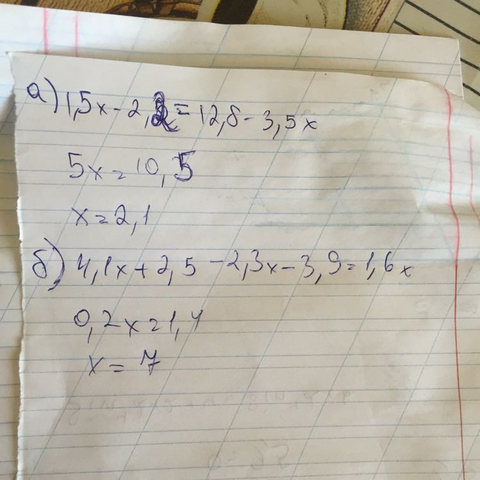 а) 1,5x - 2,2 = 12,8 - 3,5x
5x = 10,5
x = 2,1
б) 4,1x + 2,5 - 2,3x - 3,9 = 1,6x
0,2x = 1,4
x = 7